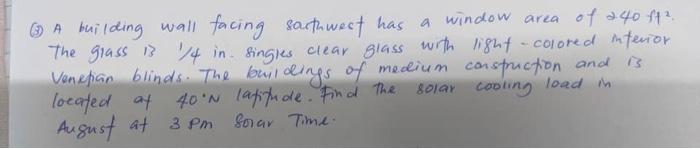 ③ A building wall facing southwest has a window area of 240 ft².
The glass is 1/4 in. singles clear glass with light-colored interior
Venetian blinds. The buildings of medium construction and is
located at 40°N latitude. Find the solar cooling load in
August at 3 PM Solar Time.